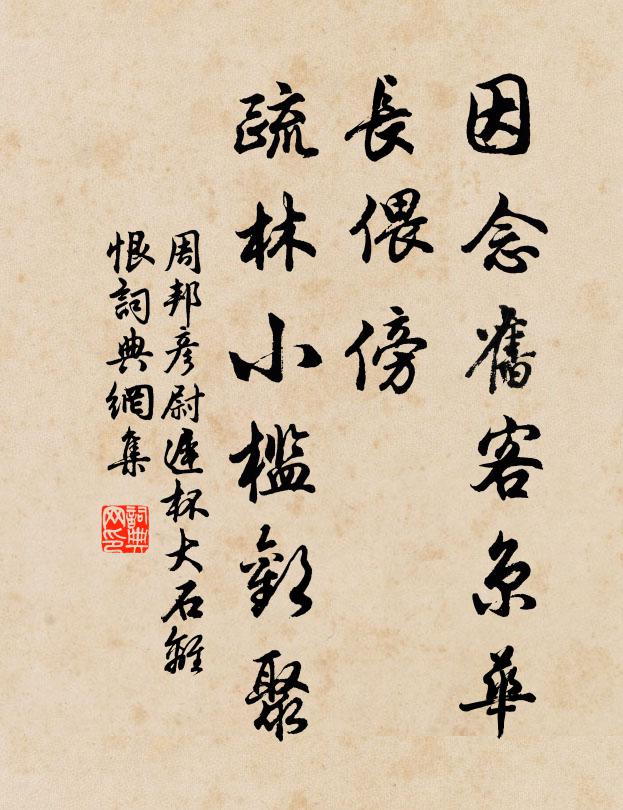 因念舊客京華
長偎傍
疏林小檻歡聚
周邦彥尉遲杯大石離
恨詞典網集
詞典
网印